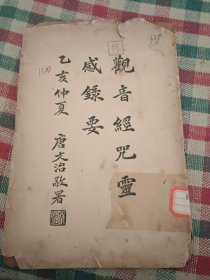 觀音經咒靈
感錄要
乙亥仲夏 唐文治敬署